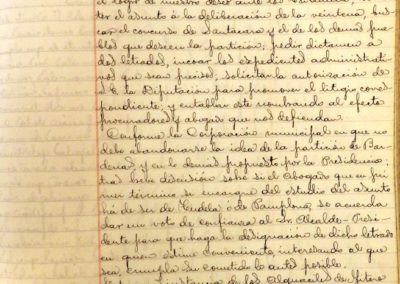 el logro de nuestro deseo ante los
ter el asunto á la deliberación de la veintena, bus-
car el concurso de Santacara y el de los demás pue-
blos que deseen la partición; pedir dictamen á
dos letrados, incoar los expedientes administrati-
vos que sean precisos; solicitar la autorización de
S.E. la Diputación para promover el litigio corres-
pondiente; y entablar este nombrando al efecto
procuradores y abogados que nos defiendan.
Conforme la Corporación municipal en que no
debe abandonarse la idea de la partición de Bar-
denas y en lo demás propuesto por la Presidencia;
tras breve discusión sobre si el Abogado que en pri-
mer término se encargue del estudio del asunto
ha de ser de Tudela ó de Pamplona, se acuerda
dar un voto de confianza al Sr. Alcalde-Presi-
dente para que haga la designación de dicho letrado
en quien estime conveniente, interesando al que
sea, cumpla su cometido lo antes posible.
instancia de los Alguaciles de Fitero